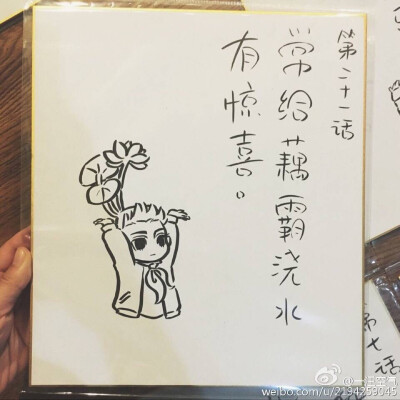 第二十一话
常给藕霸浇水
有惊喜。
第七话
weibo.com/u/2194259045